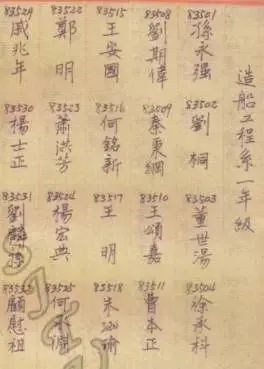 造船工程系一年級
83501 孫永强
83502 劉桐
83503 董世湯
83504 徐承科
83508 劉期偉
83509 秦東綱
83510 王頌嘉
83511 曹本正
83515 王安國
83516 何銘新
83517 王明
83518 朱瑜
83522 鄭明
83523 蕭洪芳
83524 楊宏典
83525 何
83529 戚兆年
83530 楊士正
83531 劉
顧慰祖